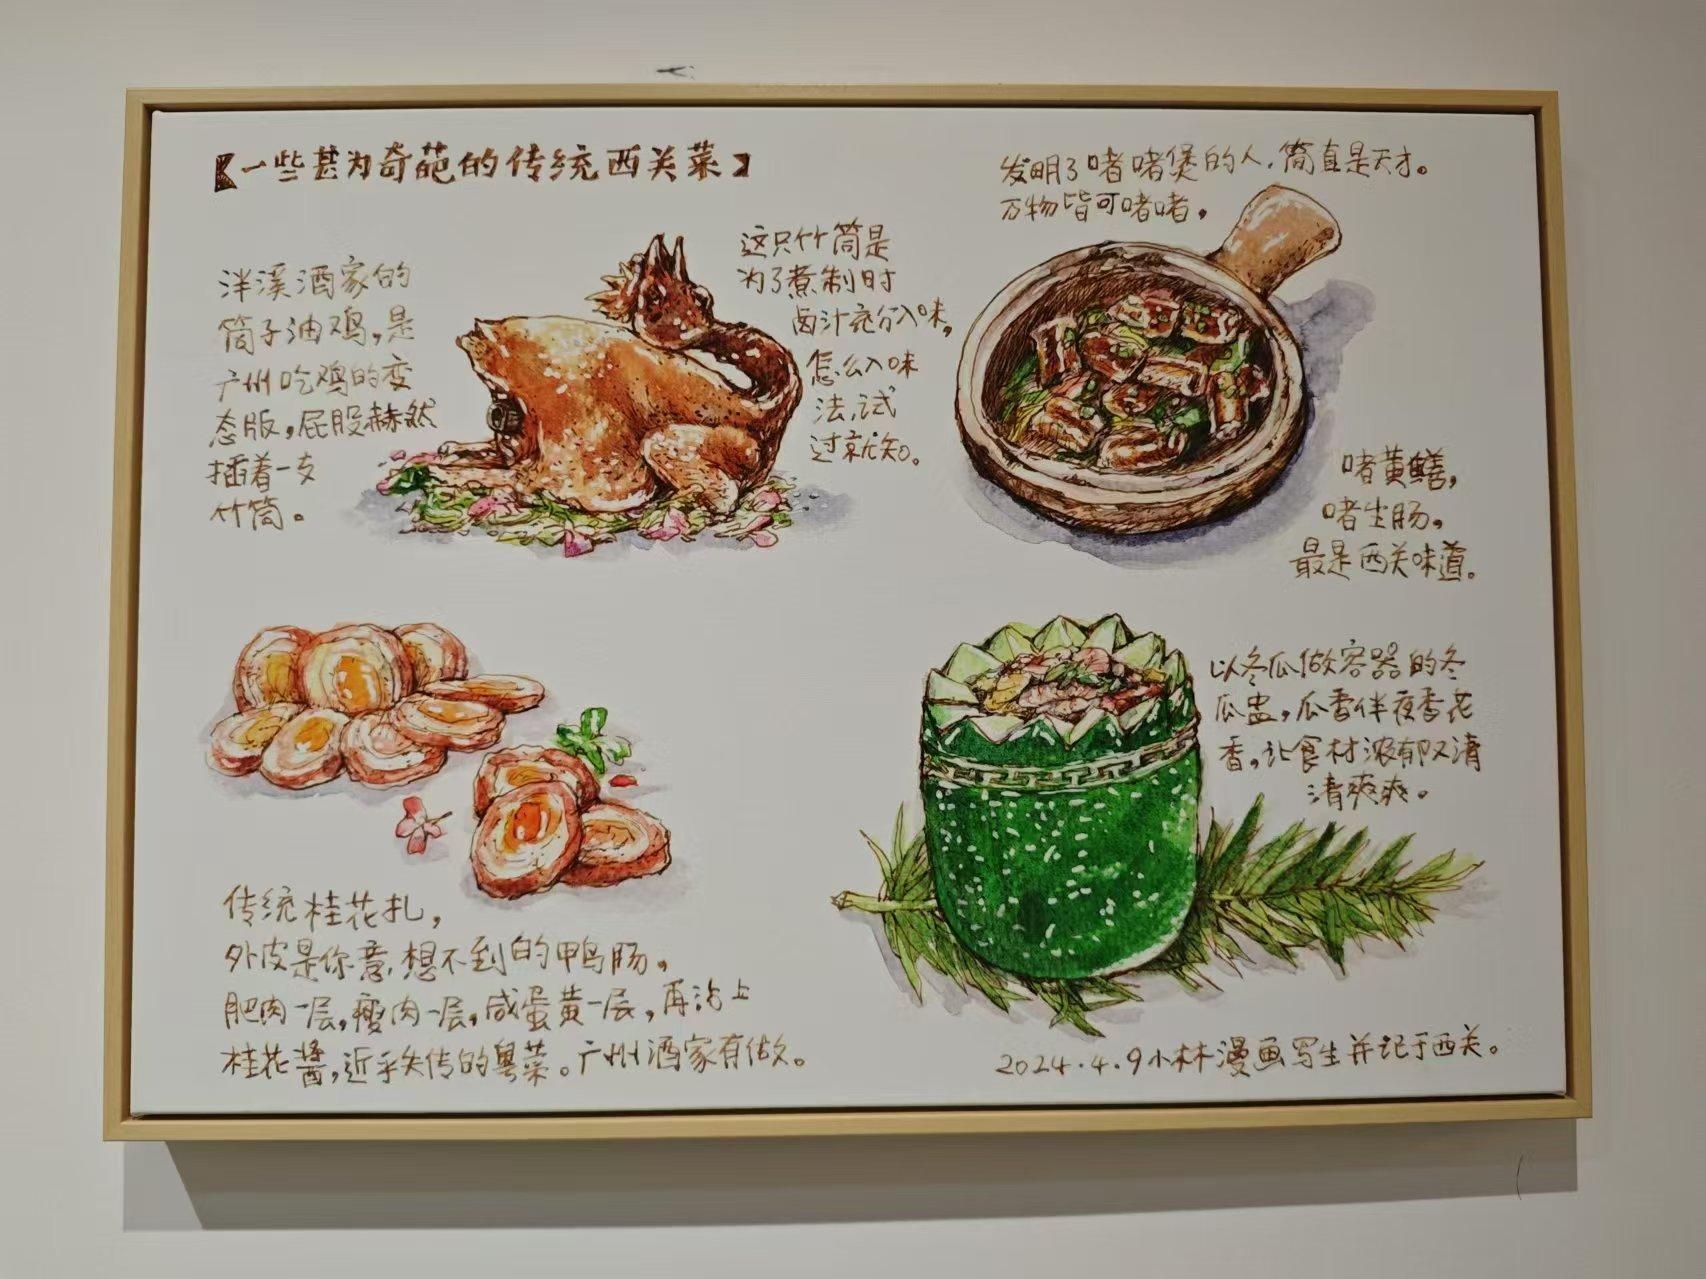 【一些甚为奇葩的传统西关菜】
泮溪酒家的
筒子油鸡，是
广州吃鸡的变
态版，屁股赫然
插着一支
竹筒。
这只竹筒是
为了煮制时
卤汁充分入味，
怎么入味
法，试
过就知。
发明了啫啫煲的人，简直是天才。
万物皆可啫啫。
啫黄鳝，
啫生肠，
最是西关味道。
传统桂花扎，
外皮是你意想不到的鸭肠。
肥肉一层，瘦肉一层，咸蛋黄一层，再沾上
桂花酱，近乎失传的粤菜。广州酒家有做。
以冬瓜做容器的冬
瓜盅，瓜香伴夜香花
香，让食材浓郁又清
清爽爽。
2024.4.9小林漫画写生并记于西关。